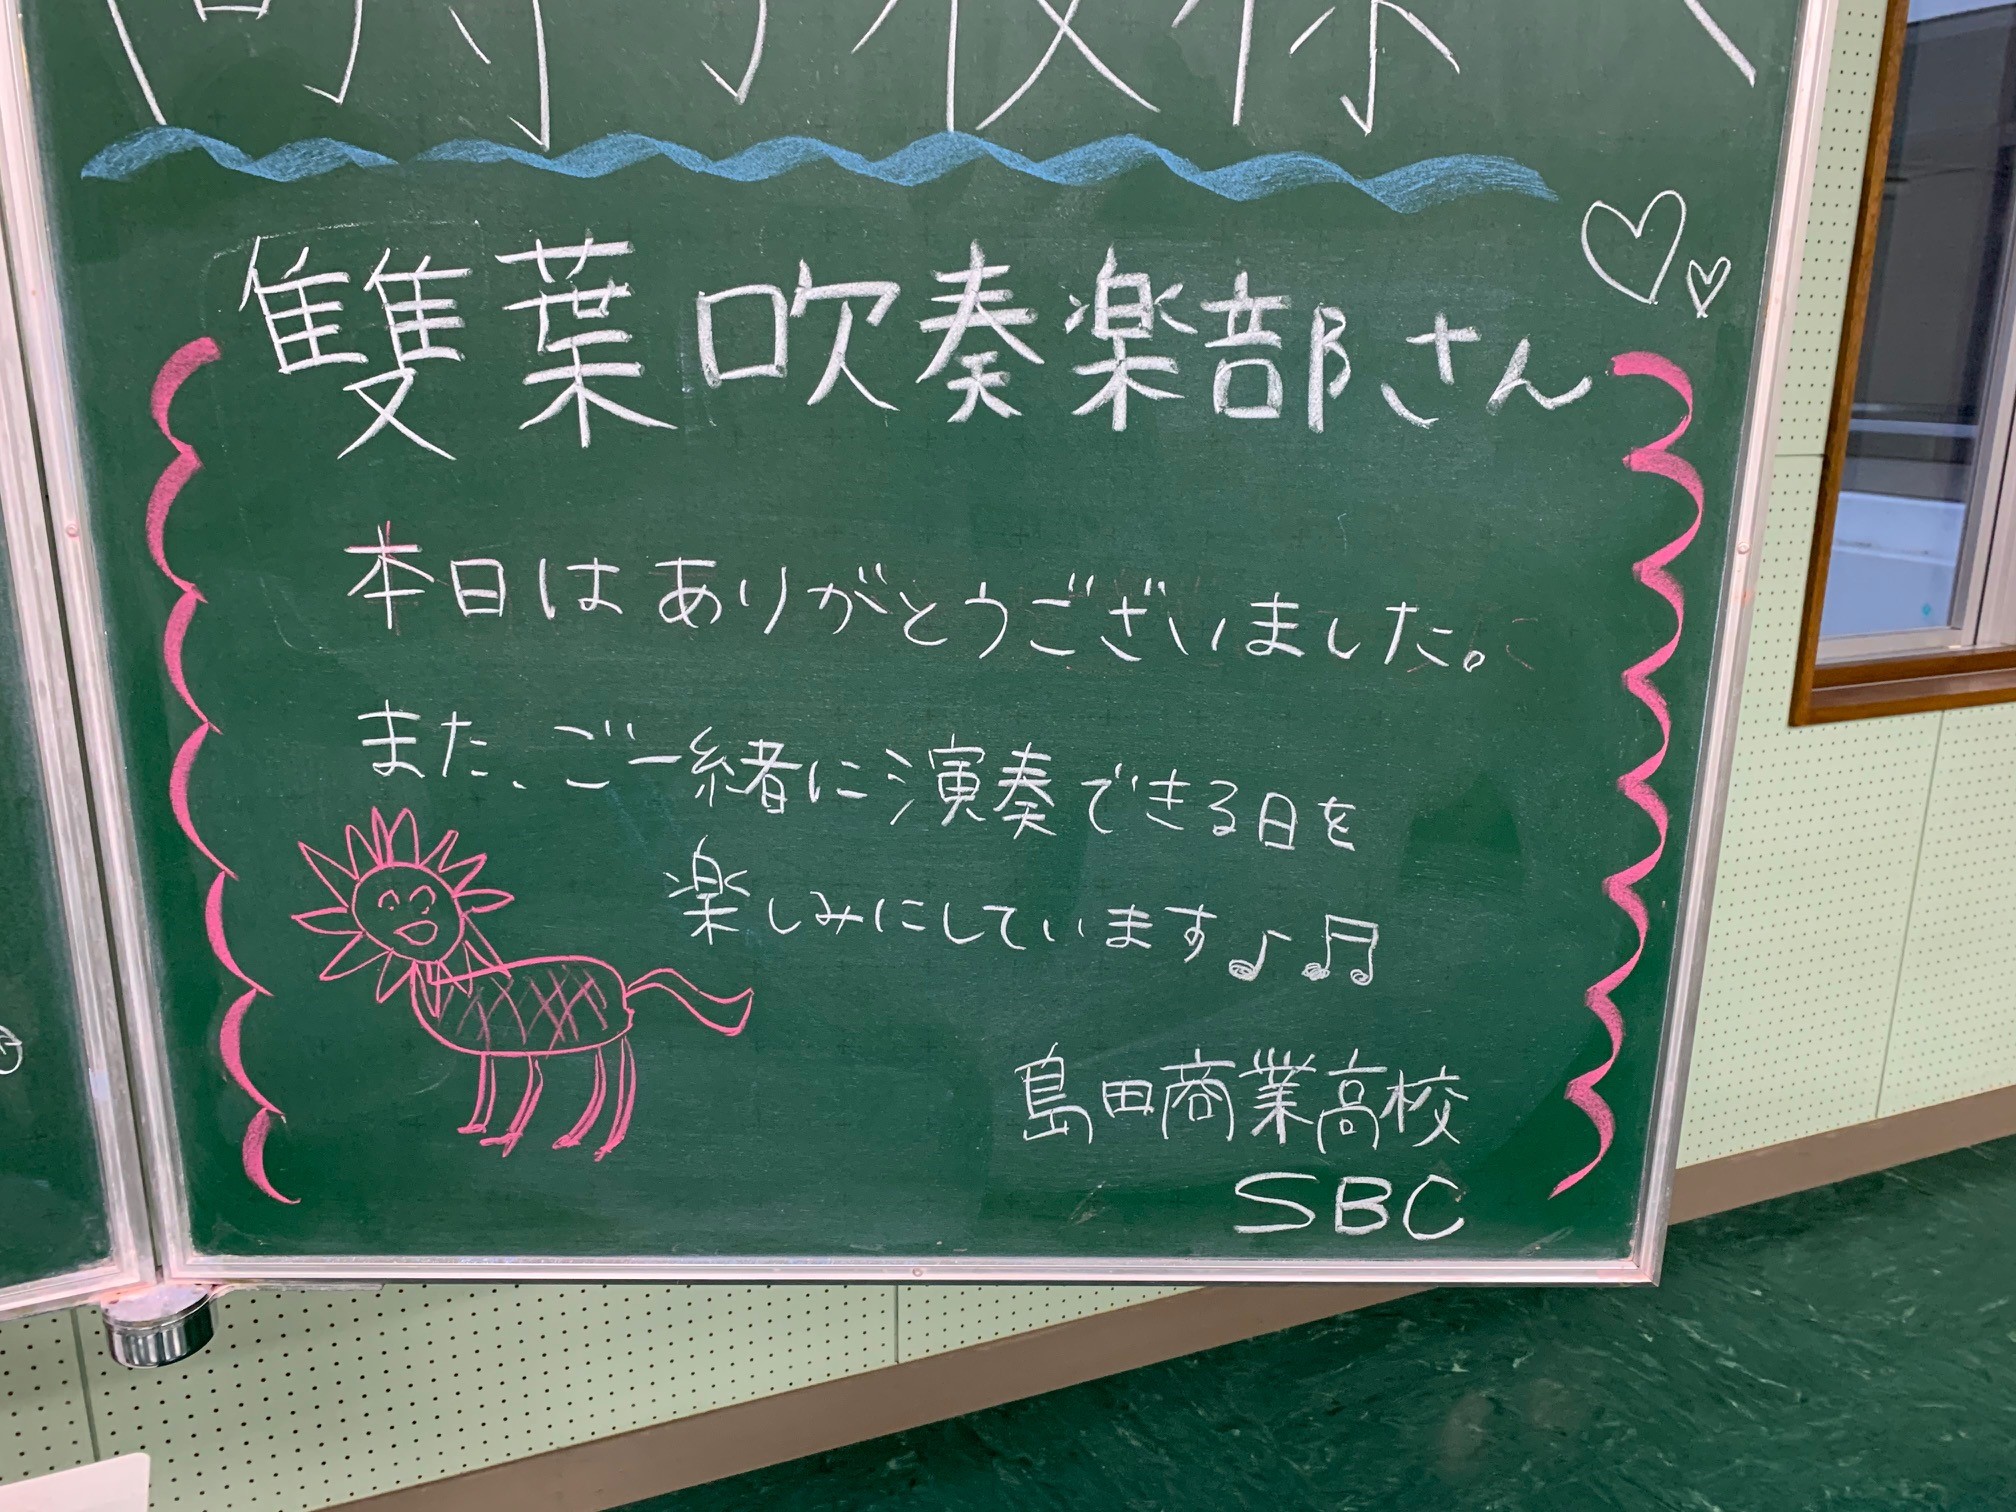 高等学校様へ
雙葉吹奏楽部さん
本日はありがとうございました。
また、ご一緒に演奏できる日を
楽しみにしています♪♬
島田商業高校
SBC